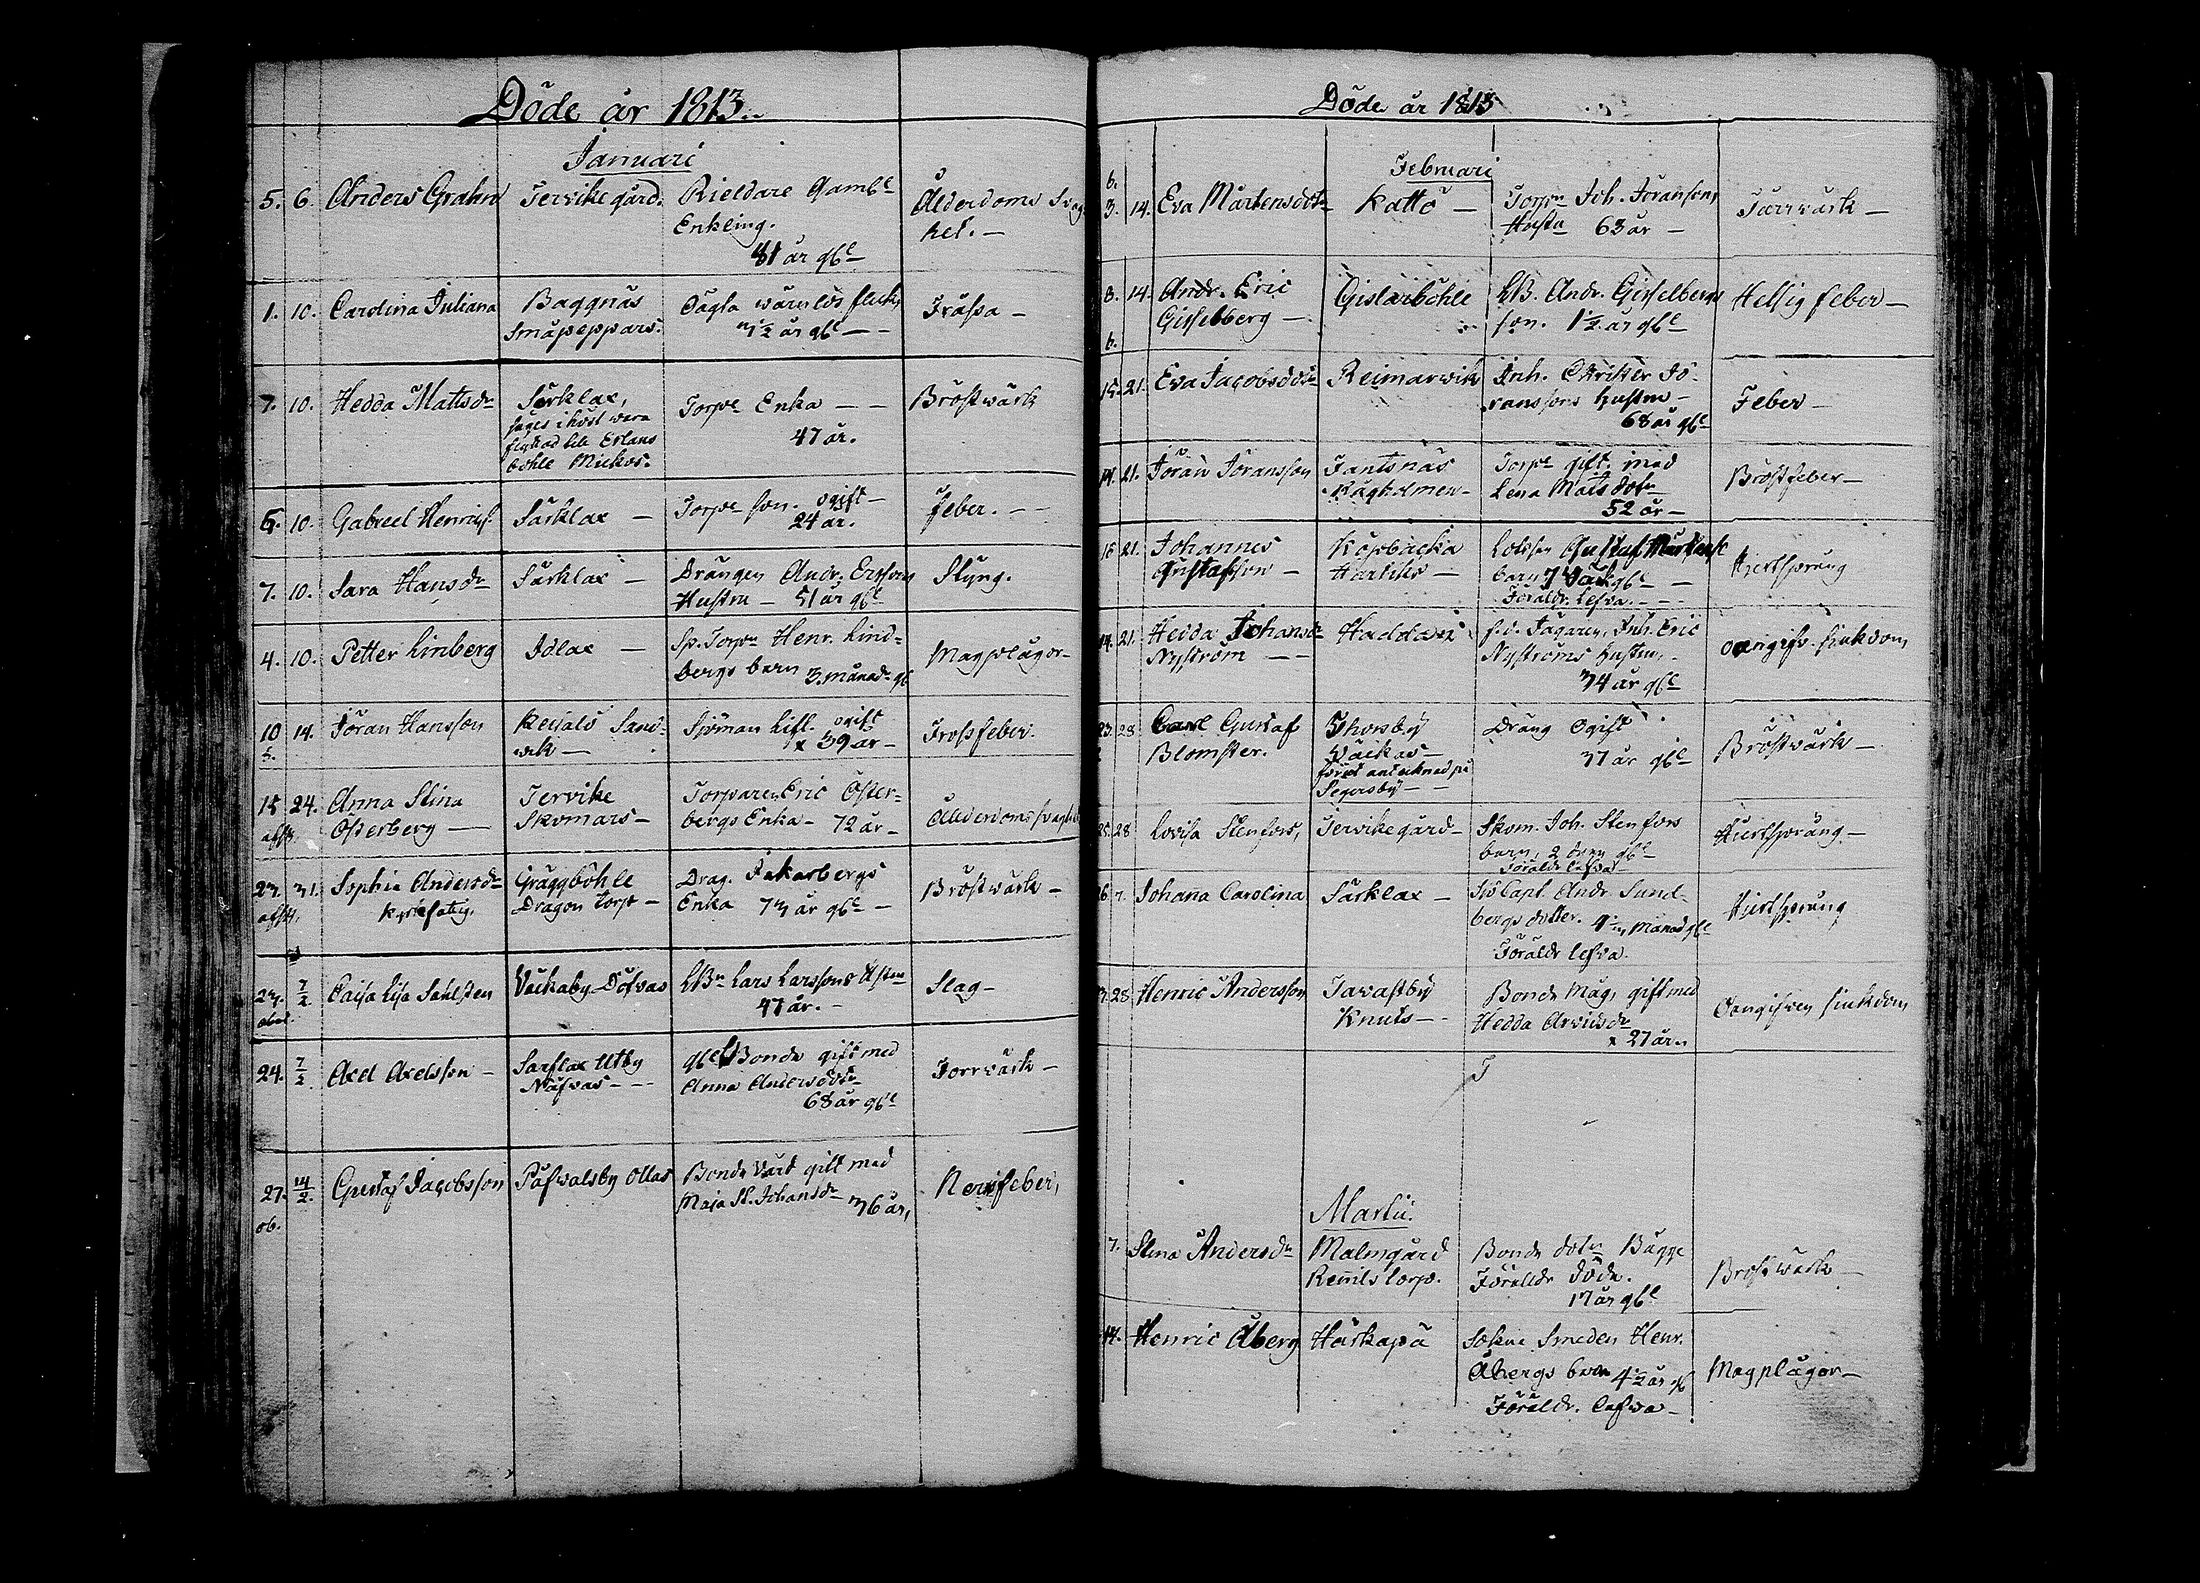 Döde år 1813.
Januari
5. 6. Anders Grahn Tervike gård. Rieldare Gaml.
Enkling.
81 år gl. Ålderdoms Svag
het. —
1. 10. Carolina Juliana Baggnäs
Småpeppars. wärnlös flick,
½ år gl. — Tråssa —
7. 10. Hedda Mattsdr Särklax,
säges i höst wara
flyttad till Erlans
böhle Mickos. Torpe Enka — —
47 år. Bröstwärk
6. 10. Gabriel Henrics. Särklax — Torpe son. ogift —
24 år. feber. — —
7. 10. Sara Hansdr Särklax — Drängen Andr. Ersons
Hustru — 51 år gl. Styng.
4. 10. Petter Linberg Idlax — Sp. Torpn Henr. Lind-
bergs barn 3. månad. gl Magplågor —
10 14. Jöran Hansson Keisals Sand-
wik — Sjöman Lifl. ogift
x 39 år — Trossfeber.
15 24. Anna Stina
Österberg — Tervike
Skomars — Torparen Eric Öster-
bergs Enka — 72 år — Ålderdoms svaghet
27. 31. Sophia Andersdr Gräggböhle
Dragon Torp — Drag. Jakarbergs
Enka 73 år gl. — Bröstwärk —
27. 7/2 Caisa Lisa Sahlsten Väckaby Döfvas LBn Lars Larssons Hstru
47 år. — Slag —
24. 7/2 Axel Axelsson — Sarflax Utby
Näsvas — — gl. Bonde gift med
Anna Andersdotr
68 år gl. Torrwärk —
27. 14/2. Gustaf Jacobsson Påfvalsby Ollas Bonde Värd gift med
Maja St. Johansdr 36 år, Nervfeber,
ob.
Döde år 1813
Februari
3. 14. Eva Mårtensdotr Kattö — Torpn Joh. Joransons
Hustru 63 år — Torrvärk —
8. 14. Andr. Eric
Gisselberg — Gislarböhle LB. Andr. Gisselbergs
son. 1½ år gl. Hetsig feber —
15. 21. Eva Jacobsdotr Reimarwik Inh. Christer Jö-
ranssons hustru —
68 år gl. Feber —
14. 21. Jöran Joransson Fantsnäs
Rågholmen — Torpe gift. med
Lena Matsdotr
52 år — Bröstfeber —
15 21. Johannes
Gustafsson — Köpbacka
Hartiks — Lotsen Gustaf Mårtenss
barn 7 gl. —
Föräldr. lefva. — — Hjertsprång
14. 21. Hedda Johansdr
Nyström — — Haddom f.d. Jägaren, Inh. Eric
Nyströms hustru,
74 år gl. Oangifv. sjukdom,
23. 28 Carl Gustaf
Blomster. Thorsby
Wäckas —
förut antecknad på
Segersby — — Dräng Ogift
37 år gl. Bröstvärk —
25. 28 Lovisa Stenfors, Tervike gård — Skom. Joh. Stenfors
barn, 2 gl.
Föräldr lefva — Hjertsprång —
Johana Carolina Särklax — Sjö Capt. Andr. Sund-
bergs dotter. 4 månad gl.
Föräldr lefva. Hjertsprång
28 Henric Andersson Tavastby
Knuts — Bonde Måg, gift med
Hedda Arvidsdr
x 27 år. Oangifven sjukdom,
Martii.
7. Stina Andersdr Malmgård
Remils torp. Bonde dotr Bagge
Föräldr Döde.
17 år gl. Bröstwärk —
14. Henric Åberg Härkapä Sokne Smeden Henr.
Åbergs barn 4½ år gl
Föräldr. lefva — Magplågor —